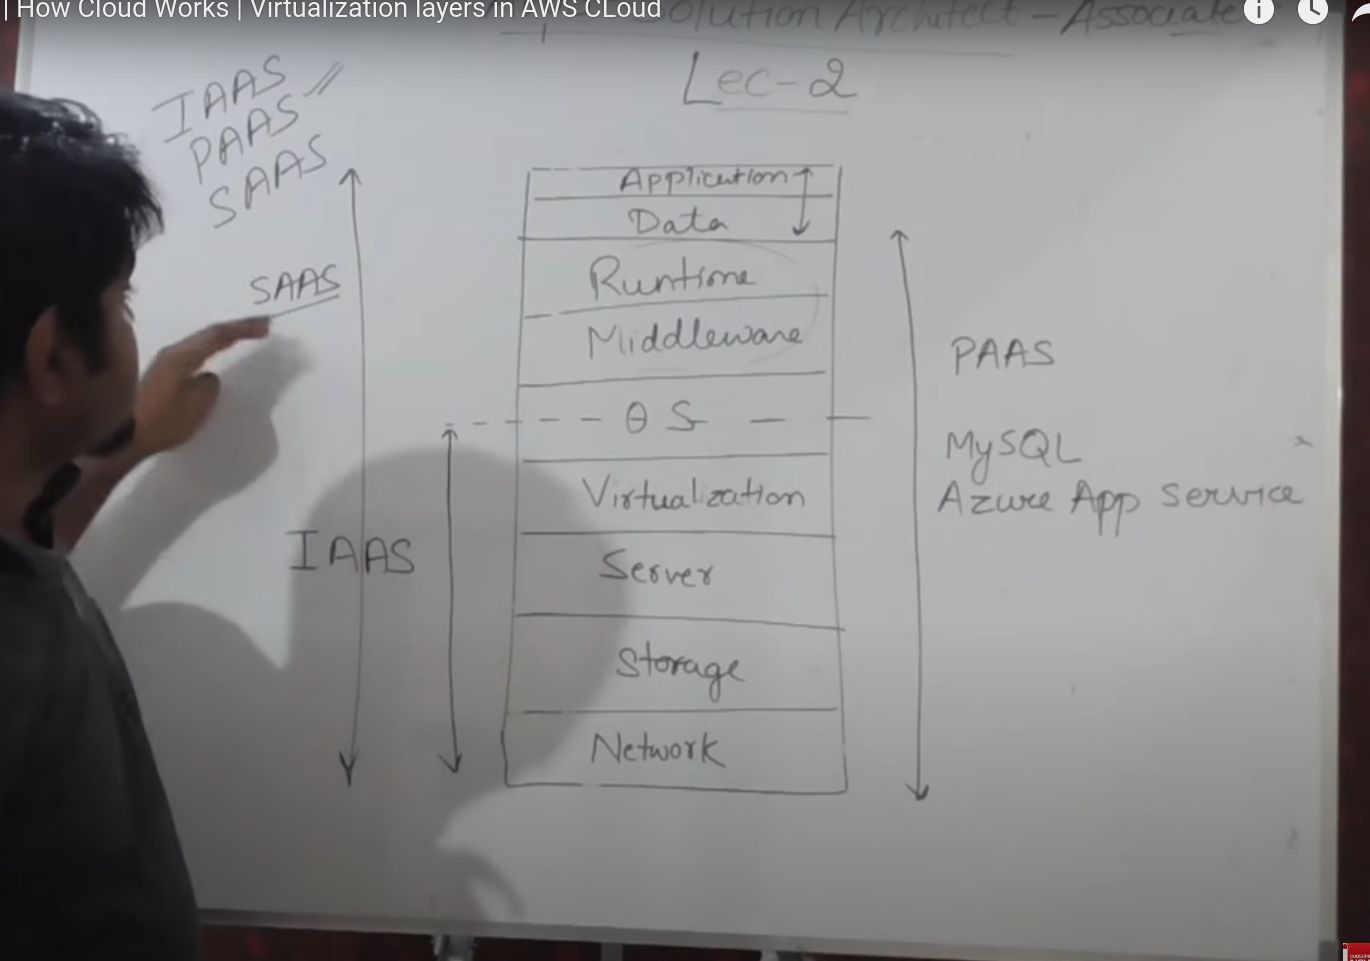 | How Cloud Works | Virtualization layers in AWS CLoud
Solution Architect - Associate
Lec-2
IAAS
PAAS
SAAS
SAAS
IAAS
Application
Data
Runtime
Middleware
OS
Virtualization
Server
Storage
Network
PAAS
MySQL
Azure App Service